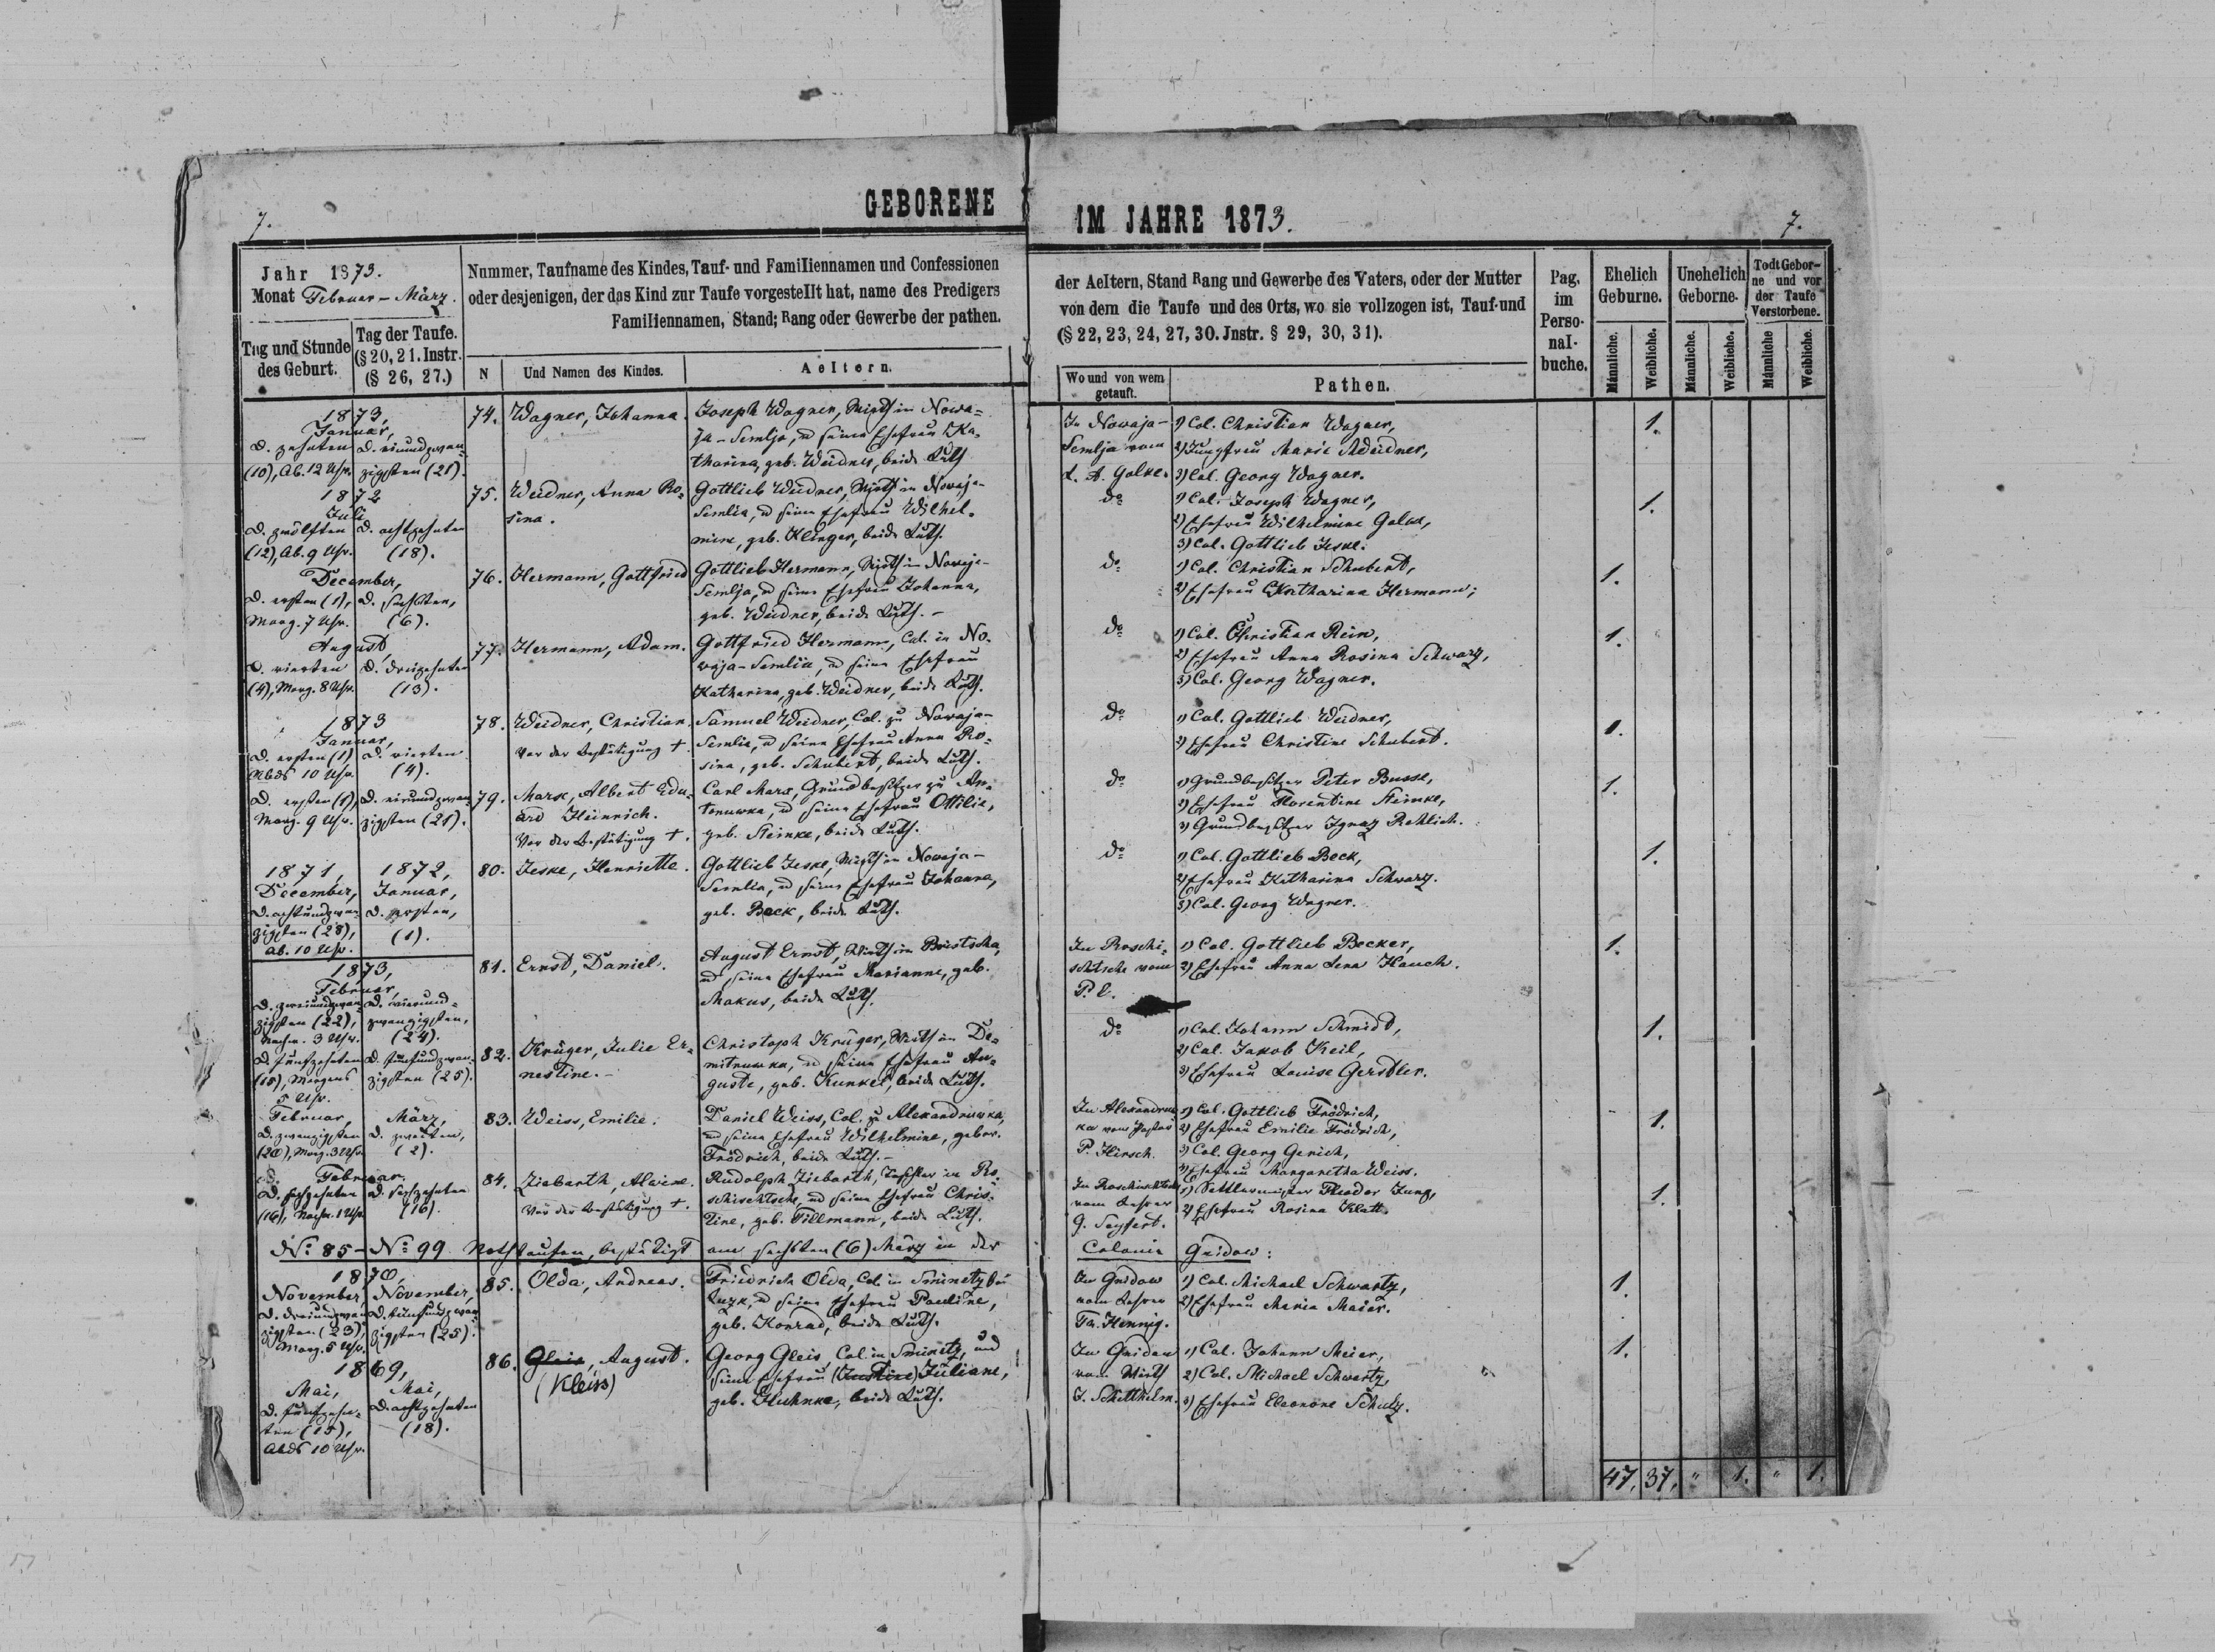 7.
GEBORENE
IM JAHRE 1873.
7.
Jahr 1873.
Monat Februar - März.
Tag und Stunde
des Geburt.
Tag der Taufe.
(§ 20, 21. Instr.
(§ 26, 27.)
Nummer, Taufname des Kindes, Tauf- und Familiennamen und Confessionen
oder desjenigen, der das Kind zur Taufe vorgestellt hat, name des Predigers
Familiennamen, Stand; Rang oder Gewerbe der pathen.
N
Und Namen des Kindes.
Aeltern.
der Aeltern, Stand Rang und Gewerbe des Vaters, oder der Mutter
von dem die Taufe und des Orts, wo sie vollzogen ist, Tauf- und
(§ 22, 23, 24, 27, 30. Jnstr. § 29, 30, 31).
Wo und von wem
getauft.
Pathen.
Pag.
im
Perso-
nal-
buche.
Ehelich
Geburne.
Unehelich
Geborne.
Todt Gebor-
ne und vor
der Taufe
Verstorbene.
Männliche.
Weibliche.
Männliche.
Weibliche.
Männliche
Weibliche.
1873,
Januar,
D. zehnten
(10), Ab. 12 Uhr.
D. einundzwan-
zigsten (21).
74.
Wagner, Johanna
Joseph Wagner, Wirth in Nowa-
ja-Semlja, u seine Ehefrau Ka-
tharina, geb. Weidner, beide Luth
In Nowaja-
Semlja vom
L. A. Golke.
1) Col. Christian Wagner,
2) Jungfrau Marie Weidner,
3) Col. Georg Wagner.
1.
1872
Juli
D. zwölften
(12), Ab. 9 Uhr.
D. achtzehnten
(18).
75.
Weidner, Anna Ro-
sina.
Gottlieb Weidner, Wirth in Nowaja-
Semlia, u seine Ehefrau Wilhel-
mine, geb. Klinger, beide Luth.
do
1) Col. Joseph Wagner,
2) Ehefrau Wilhelmine
3) Col. Gottlieb Jeske.
1.
December,
D. ersten (1),
Morg. 7 Uhr.
D. sechsten,
(6).
76.
Hermann, Gottfried
Gottlieb Hermann, Wirth in Nowaja-
Semlja, u seine Ehefrau Johanna,
geb. Weidner, beide Luth. -
do
1) Col. Christian Schubert,
2) Ehefrau Katharina Hermann;
1.
August,
D. vierten
(4), Morg. 8 Uhr.
D. dreizehnten
(13).
77.
Hermann, Adam.
Gottfried Hermann, Col. in No-
waja-Semlia, u seine Ehefrau
Katharina, geb. Weidner, beide Luth.
do
1) Col. Christian Rein,
2) Ehefrau Anna Rosina Schwarz,
3) Col. Georg Wagner.
1.
1873
Januar,
D. ersten (1)
Abds 10 Uhr.
D. vierten
(4).
78.
Weidner, Christian.
Vor der Bestätigung †.
Samuel Weidner, Col. zu Nowaja-
Semlia, u seine Ehefrau Anna Ro-
sina, geb. Schubert, beide Luth.
do
1) Col. Gottlieb Weidner,
2) Ehefrau Christine Schubert.
1.
D. ersten (1),
Morg. 9 Uhr.
D. einundzwan-
zigsten (21).
79.
Marx, Albert Edu-
ard Heinrich.
Vor der Bestätigung †.
Carl Marx, Grundbesitzer zu An-
tonuwka, u seine Ehefrau Ottilie,
geb. Steinke, beide Luth.
do
1) Grundbesitzer Peter Busse,
2) Ehefrau Florentine Steinke,
3) Grundbesitzer Ignaz Rehlich.
1.
1871,
December,
D. achtundzwan-
zigsten (28),
Ab. 10 Uhr.
1872,
Januar,
D. ersten,
(1).
80.
Jeske, Henriette.
Gottlieb Jeske, Wirth in Nowaja-
Semlia, u seine Ehefrau Johanna,
geb. Beck, beide Luth.
do
1) Col. Gottlieb Beck,
2) Ehefrau Katharina Schwarz.
3) Col. Georg Wagner.
1.
1873,
Februar,
D. zweiundzwan-
zigsten (22),
Nachm. 3 Uhr.
D. vierund-
zwanzigsten,
(24).
81.
Ernst, Daniel.
August Ernst, Wirth in
u seine Ehefrau Marianne, geb.
Makus, beide Luth.
In Roschi-
schtsche vom
P. l.
1) Col. Gottlieb Becker,
2) Ehefrau Anna Lena Hauch.
1.
D. fünfzehnten
(15), Morgens
5 Uhr.
D. fünfundzwan-
zigsten (25).
82.
Krüger, Julie Er-
nestine. -
Christoph Krüger, Wirth in De-
mitruwka, u seine Ehefrau Au-
guste, geb. Kunkel, beide Luth.
do
1) Col. Johann Schmidt,
2) Col. Jakob Keil,
3) Ehefrau Louise Gerstler.
1.
Februar,
D. zwanzigsten
(20), Morg. 3 Uhr
März,
D. zweiten,
(2).
83.
Weiss, Emilie.
Daniel Weiss, Col. zu Alexandruwka,
u seine Ehefrau Wilhelmine, gebor.
Frödrich, beide Luth. -
In Alexandruw-
ka vom Pastor
P. Hirsch.
1) Col. Gottlieb Frödrich,
2) Ehefrau Emilie Frödrich,
3) Col. Georg Gerich,
4) Ehefrau Margaretha Weiss.
1.
Februar.
D. sechzehnten
(16), Nachm. 1 Uhr
D. sechzehnten
(16).
84.
Ziebarth, Alwine.
Vor der Bestätigung †.
Rudolph Ziebarth, Tischler in Ro-
schischtsche, u seine Ehefrau Chris-
tine, geb. Tillmann, beide Luth.
In Roschischtsche
vom Lehrer
G. Seyfert.
1) Sattlermeister Theodor Jung,
2) Ehefrau Rosina Klatt.
1.
No: 85 - No: 99 Nothtaufen, bestätigt am sechsten (6) März in der Colonie Gnidow:
1870,
November,
D. dreiundzwan-
zigsten (23),
Morg. 5 Uhr.
November,
D. fünfundzwan-
zigsten (25).
85.
Olda, Andreas.
Friedrich Olda, Col. in Sminetz bei
Luzk, u seine Ehefrau Pauline,
geb. Konrad, beide Luth.
In Gnidow
vom Lehrer
Hennig.
1) Col. Michael Schwartz,
2) Ehefrau Maria Maier.
1.
1869,
Mai,
D. fünfzehn-
ten (15),
Abds 10 Uhr.
Mai,
D. achtzehnten
(18).
86.
Gleis, August.
(Kleiss)
Georg Gleis, Col. in Sminetz, und
seine Ehefrau (Justine) Juliane,
geb. Huhnke, beide Luth.
In Gnidau
vom Wirth
J. Schitthelm.
1) Col. Johann Meier,
2) Col. Michael Schwartz,
3) Ehefrau Eleonore Schulz.
1.
47. 37. " 1. " 1.